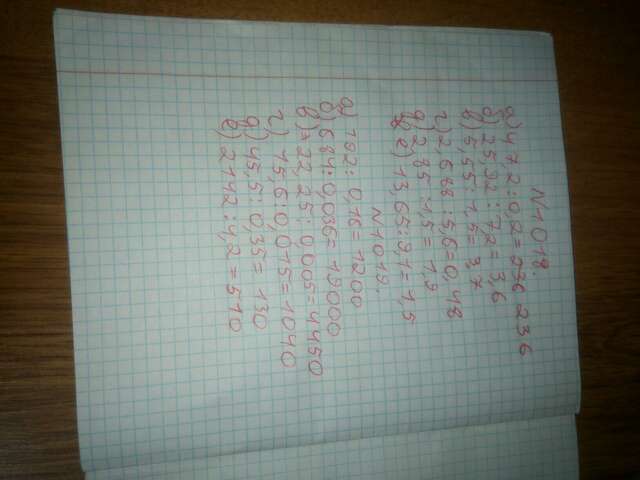 N1018.
а) 472:0,2=236 236
б) 25,92:7,2=3,6
в) 5,55:1,5=3,7
г) 2,688:5,6=0,48
д) 2,85:1,5=1,9
е) 13,65:9,1=1,5
N1019.
а) 192:0,16=1200
б) 684:0,036=19000
в) 22,25:0,005=4450
г) 15,6:0,015=1040
д) 45,5:0,35=130
е) 2142:4,2=510